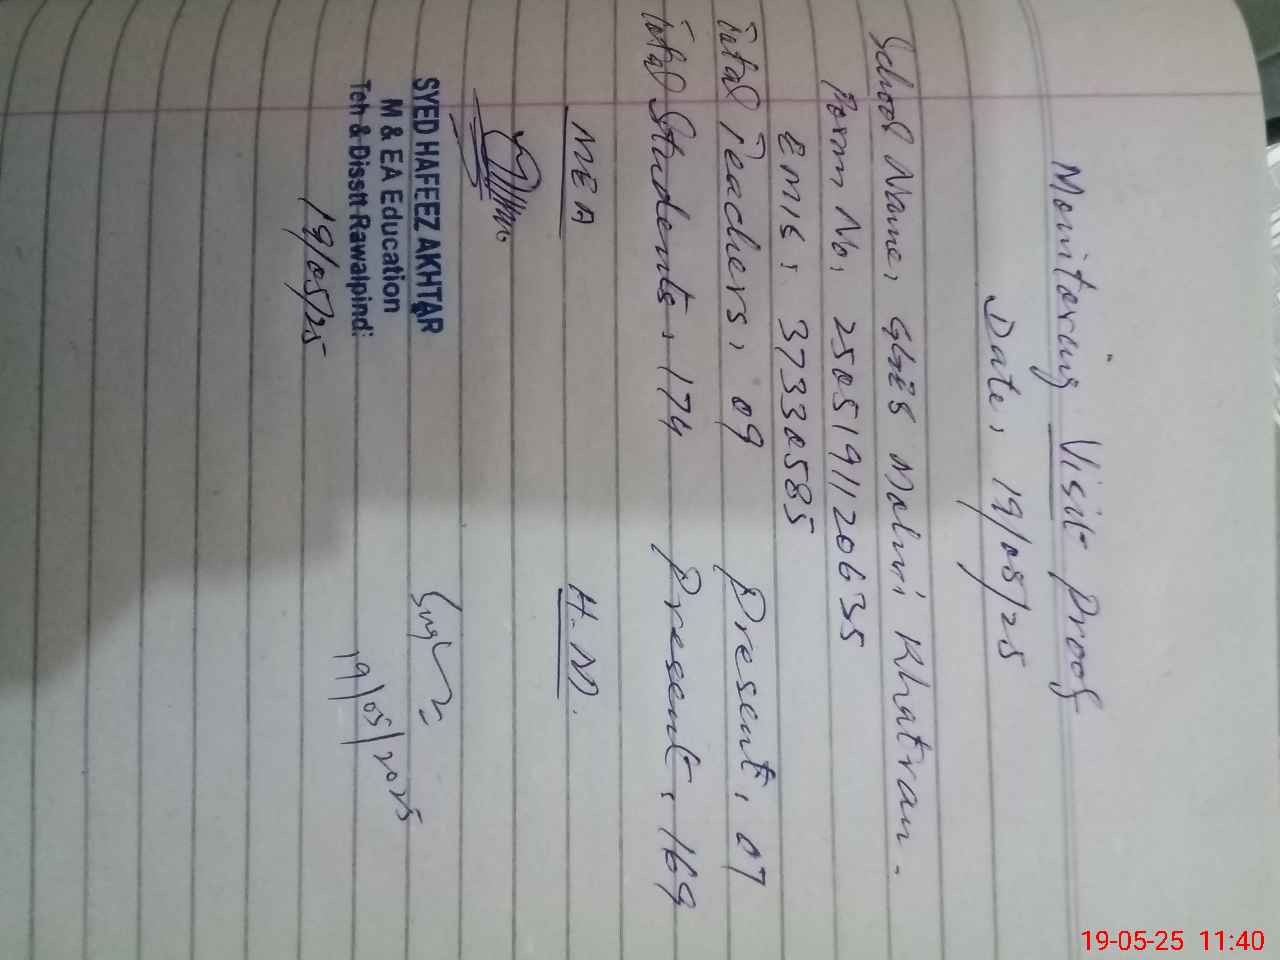 Monitoring Visit Proof
Date: 19/05/25
School Name: GGES Mohri Khatran.
Form No: 25051911206 35
EMIS: 37330585
Total Teachers: 09 Present: 07
Total Students: 174 Present: 169
MEA H.M.
SYED HAFEEZ AKHTAR
M & EA Education
Teh & Disstt Rawalpindi
19/05/25
19/05/2025
19-05-25 11:40